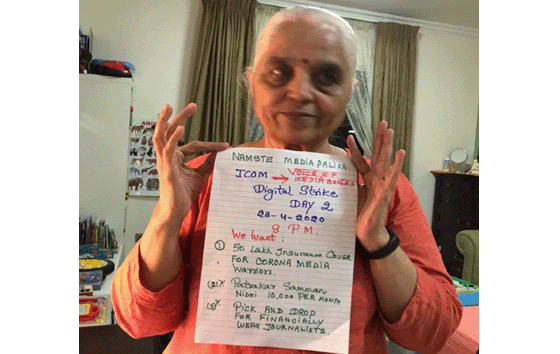 NAMSTE MEDIA PALIKA
ICOM → VOICE OF
MEDIA BODIES
Digital Strike
DAY 2
28-4-2020
8 P.M.
We want :
① 50 Lakh Insurance Cover
FOR CORONA MEDIA
Warriors.
(2) Patrakar Samman
Nidhi 10,000 PER MONTH
(3) PICK AND DROP
FOR FINANCIALLY
WEAK JOURNALISTS